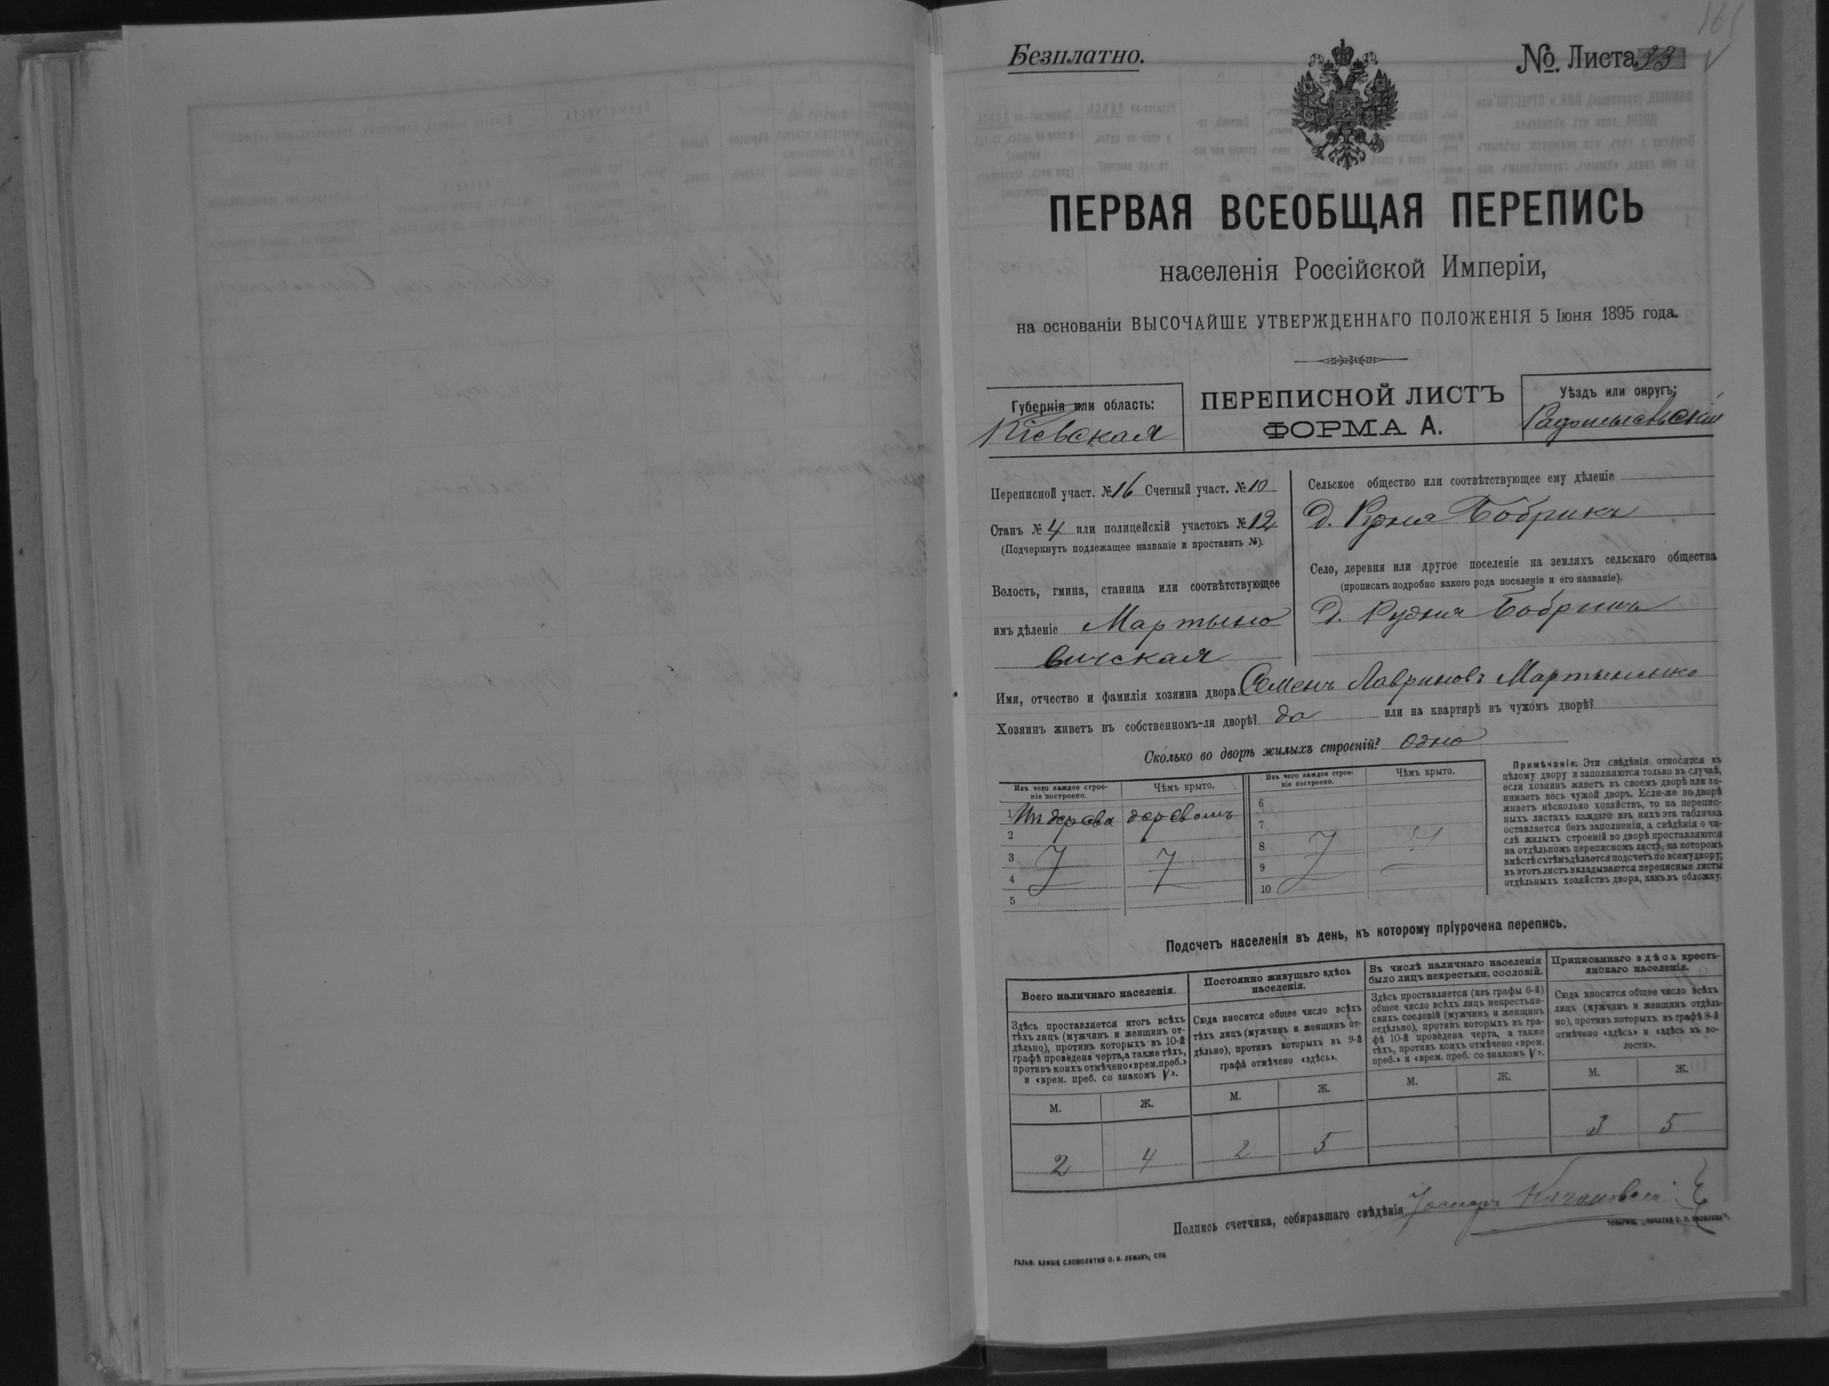 161
Безплатно.
№ Листа 33
ПЕРВАЯ ВСЕОБЩАЯ ПЕРЕПИСЬ
населенія Россійской Имперіи,
на основаніи ВЫСОЧАЙШЕ УТВЕРЖДЕННАГО ПОЛОЖЕНІЯ 5 Іюня 1895 года.
Губернія или область:
Кіевская
ПЕРЕПИСНОЙ ЛИСТЪ
ФОРМА А.
Уѣздъ или округъ:
Радомысльскій
Переписной участ. № 16 Счетный участ. № 10
Станъ № 4 или полицейскій участокъ № 12
(Подчеркнуть подлежащее названіе и проставить №).
Волость, гмина, станица или соотвѣтствующее
имъ дѣленіе Мартыно
вичская
Сельское общество или соотвѣтствующее ему дѣленіе
д. Рудня Бобрикъ
Село, деревня или другое поселеніе на земляхъ сельскаго общества
(прописать подробно какого рода поселеніе и его названіе).
д. Рудня Бобрикъ
Имя, отчество и фамилія хозяина двора Семенъ Лавриновъ Мартыненко
Хозяинъ живетъ въ собственномъ-ли дворѣ? да или на квартирѣ въ чужомъ дворѣ?
Сколько во дворѣ жилыхъ строеній? одно
Изъ чего каждое строе-
ніе построено.
Чѣмъ крыто.
Изъ чего каждое строе-
ніе построено.
Чѣмъ крыто.
1 Из дерева деревомъ
2
3
4
5
6
7
8
9
10
Примѣчаніе. Эти свѣдѣнія относятся къ
цѣлому двору и заполняются только въ случаѣ,
если хозяинъ живетъ въ своемъ дворѣ или за-
нимаетъ весь чужой дворъ. Если-же во дворѣ
живетъ нѣсколько хозяйствъ, то на перепис-
ныхъ листахъ каждаго изъ нихъ эта табличка
оставляется безъ заполненія, а свѣдѣнія о чи-
слѣ жилыхъ строеній во дворѣ проставляются
на отдѣльномъ переписномъ листѣ, на которомъ
вмѣстѣ съ тѣмъ дѣлается подсчетъ по всему двору;
въ этотъ листъ вкладываются переписные листы
отдѣльныхъ хозяйствъ двора, какъ въ обложку.
Подсчетъ населенія въ день, къ которому пріурочена перепись.
Всего наличнаго населенія.
Здѣсь проставляется итогъ всѣхъ
тѣхъ лицъ (мужчинъ и женщинъ от-
дѣльно), противъ которыхъ въ 10-й
графѣ проведена черта, а также тѣхъ,
противъ коихъ отмѣчено «врем. преб.»
и «врем. преб. со знакомъ V».
М. Ж.
2 4
Постоянно живущаго здѣсь
населенія.
Сюда вносится общее число всѣхъ
тѣхъ лицъ (мужчинъ и женщинъ от-
дѣльно), противъ которыхъ въ 9-й
графѣ отмѣчено «здѣсь».
М. Ж.
2 5
Въ числѣ наличнаго населенія
было лицъ некрестьян. сословій.
Здѣсь проставляется (изъ графы 6-й)
общее число всѣхъ лицъ некрестьян-
скихъ сословій (мужчинъ и женщинъ
отдѣльно), противъ которыхъ въ гра-
фѣ 10-й проведена черта, а также
тѣхъ, противъ коихъ отмѣчено «врем.
преб.» и «врем. преб. со знакомъ V».
М. Ж.
Приписаннаго здѣсь кресть-
янскаго населенія.
Сюда вносится общее число всѣхъ
лицъ (мужчинъ и женщинъ отдѣль-
но), противъ которыхъ въ графѣ 8-й
отмѣчено «здѣсь» и «здѣсь въ во-
лости».
М. Ж.
3 5
Подпись счетчика, собиравшаго свѣдѣнія
ГАЛЬВ. КЛИШЕ СЛОВОЛИТНИ О. И. ЛЕМАНЪ, СПБ
ТОВАРИЩ. „ПЕЧАТНЯ С. П. ЯКОВЛЕВА“.